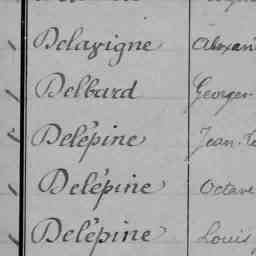 Delavigne Alexan
Delbard Georges
Delépine Jean-
Delépine Octave
Delépine Louis